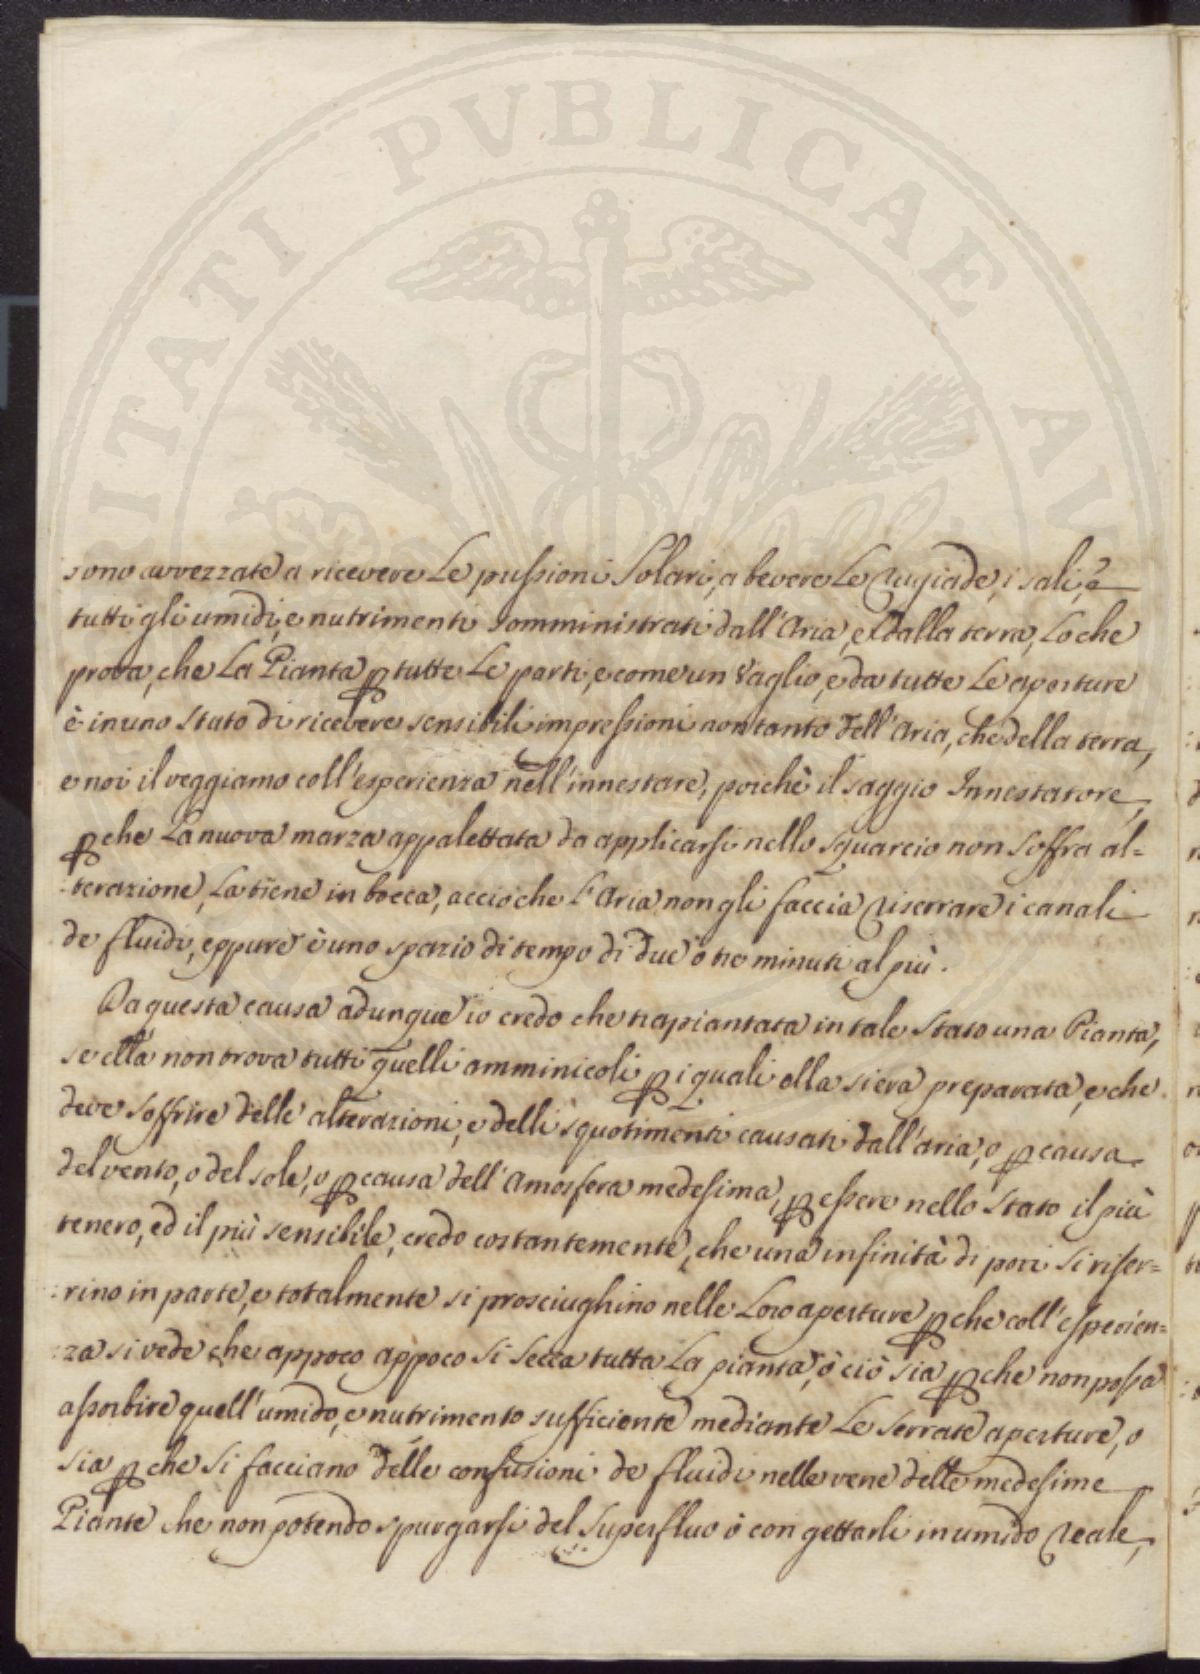 PROSPERITATI PVBLICAE AV
sono avvezzate a ricevere Le pulsioni Solari, a bevere Le rugiade, i sali, e
tutti gli umidi, e nutrimenti somministrati dall'Aria, e dalla terra, Loche
prova, che La Pianta p tutte Le parti, e come un Vaglio, e da tutte Le aperture
è in uno Stato di ricevere sensibili impressioni non tanto dell'Aria, che della terra,
e noi il veggiamo coll'esperienza nell'innestare, poichè il saggio Innestatore,
pche La nuova marza appalettata da applicarsi nello squarcio non soffra al=
:terazione, La tiene in bocca, acciò che l'Aria non gli faccia riserrare i canali
de fluidi, eppure è uno spazio di tempo di due ò tre minuti al più.
Da questa causa adunque io credo che trapiantata in tale Stato una Pianta,
se ella non trova tutti quelli amminicoli p i quali ella si era preparata, e che
deve soffrire delle alterazioni, e delli squotimenti causati dall'aria, o p causa
del vento, o del sole, o p causa dell'Amosfera medesima, p essere nello Stato il più
tenero, ed il più sensibile, credo costantemente, che una infinità di pori si riser=
:rino in parte, e totalmente si prosciughino nelle Loro aperture pche coll'esperien=
:za si vede che appoco appoco si secca tutta La pianta, ò ciò sia pche non possa
assorbire quell'umido, e nutrimento sufficiente mediante Le serrate aperture, o
sia pche si facciano delle confusioni de fluidi nelle vene delle medesime
Piante che non potendo spurgarsi del superfluo ò con gettarli in umido reale,